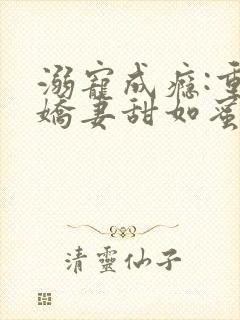 溺寵成癮:重
嬌妻甜如蜜
清靈仙子